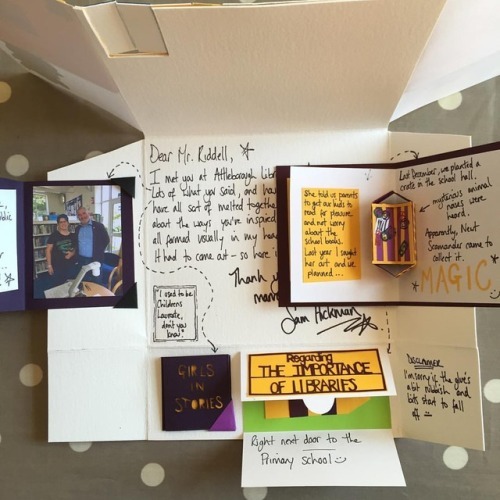 Dear Mr. Riddell,
I met you at Attleborough Lib
Lots of what you said, and hav
have all sort of melted togethe
about the ways you're inspire
all formed visually in my hea
it had to come at - so here i
Thank y
man
Sam Hickman
"I used to be
Children's
Laureate,
don't you
know"
She told us parents
to get our kids to
read for pleasure
and not worry
about the
school books.
Last year I sought
her art and we
planned ...
Last December, we planted a
crate in the school hall.
mysterious animal
noises were
heard.
Apparently, Newt
Scamander came to
collect it.
MAGIC
GIRLS
IN
STORIES
Regarding
THE IMPORTANCE
OF LIBRARIES
Right next door to the
Primary school
DISCLAIMER
I'm sorry if the glue's
a bit rubbish and
bits start to fall
off